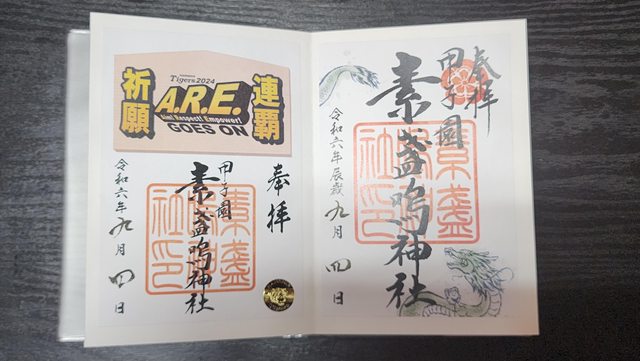 奉拝
甲子園
素盞嗚神社
令和六年辰歳九月四日
素盞
嗚神
社印
祈願
連覇
Tigers 2024
A.R.E.
Aim! Respect! Empower!
GOES ON
奉拝
甲子園
素盞嗚神社
令和六年九月四日
素盞
嗚神
社印